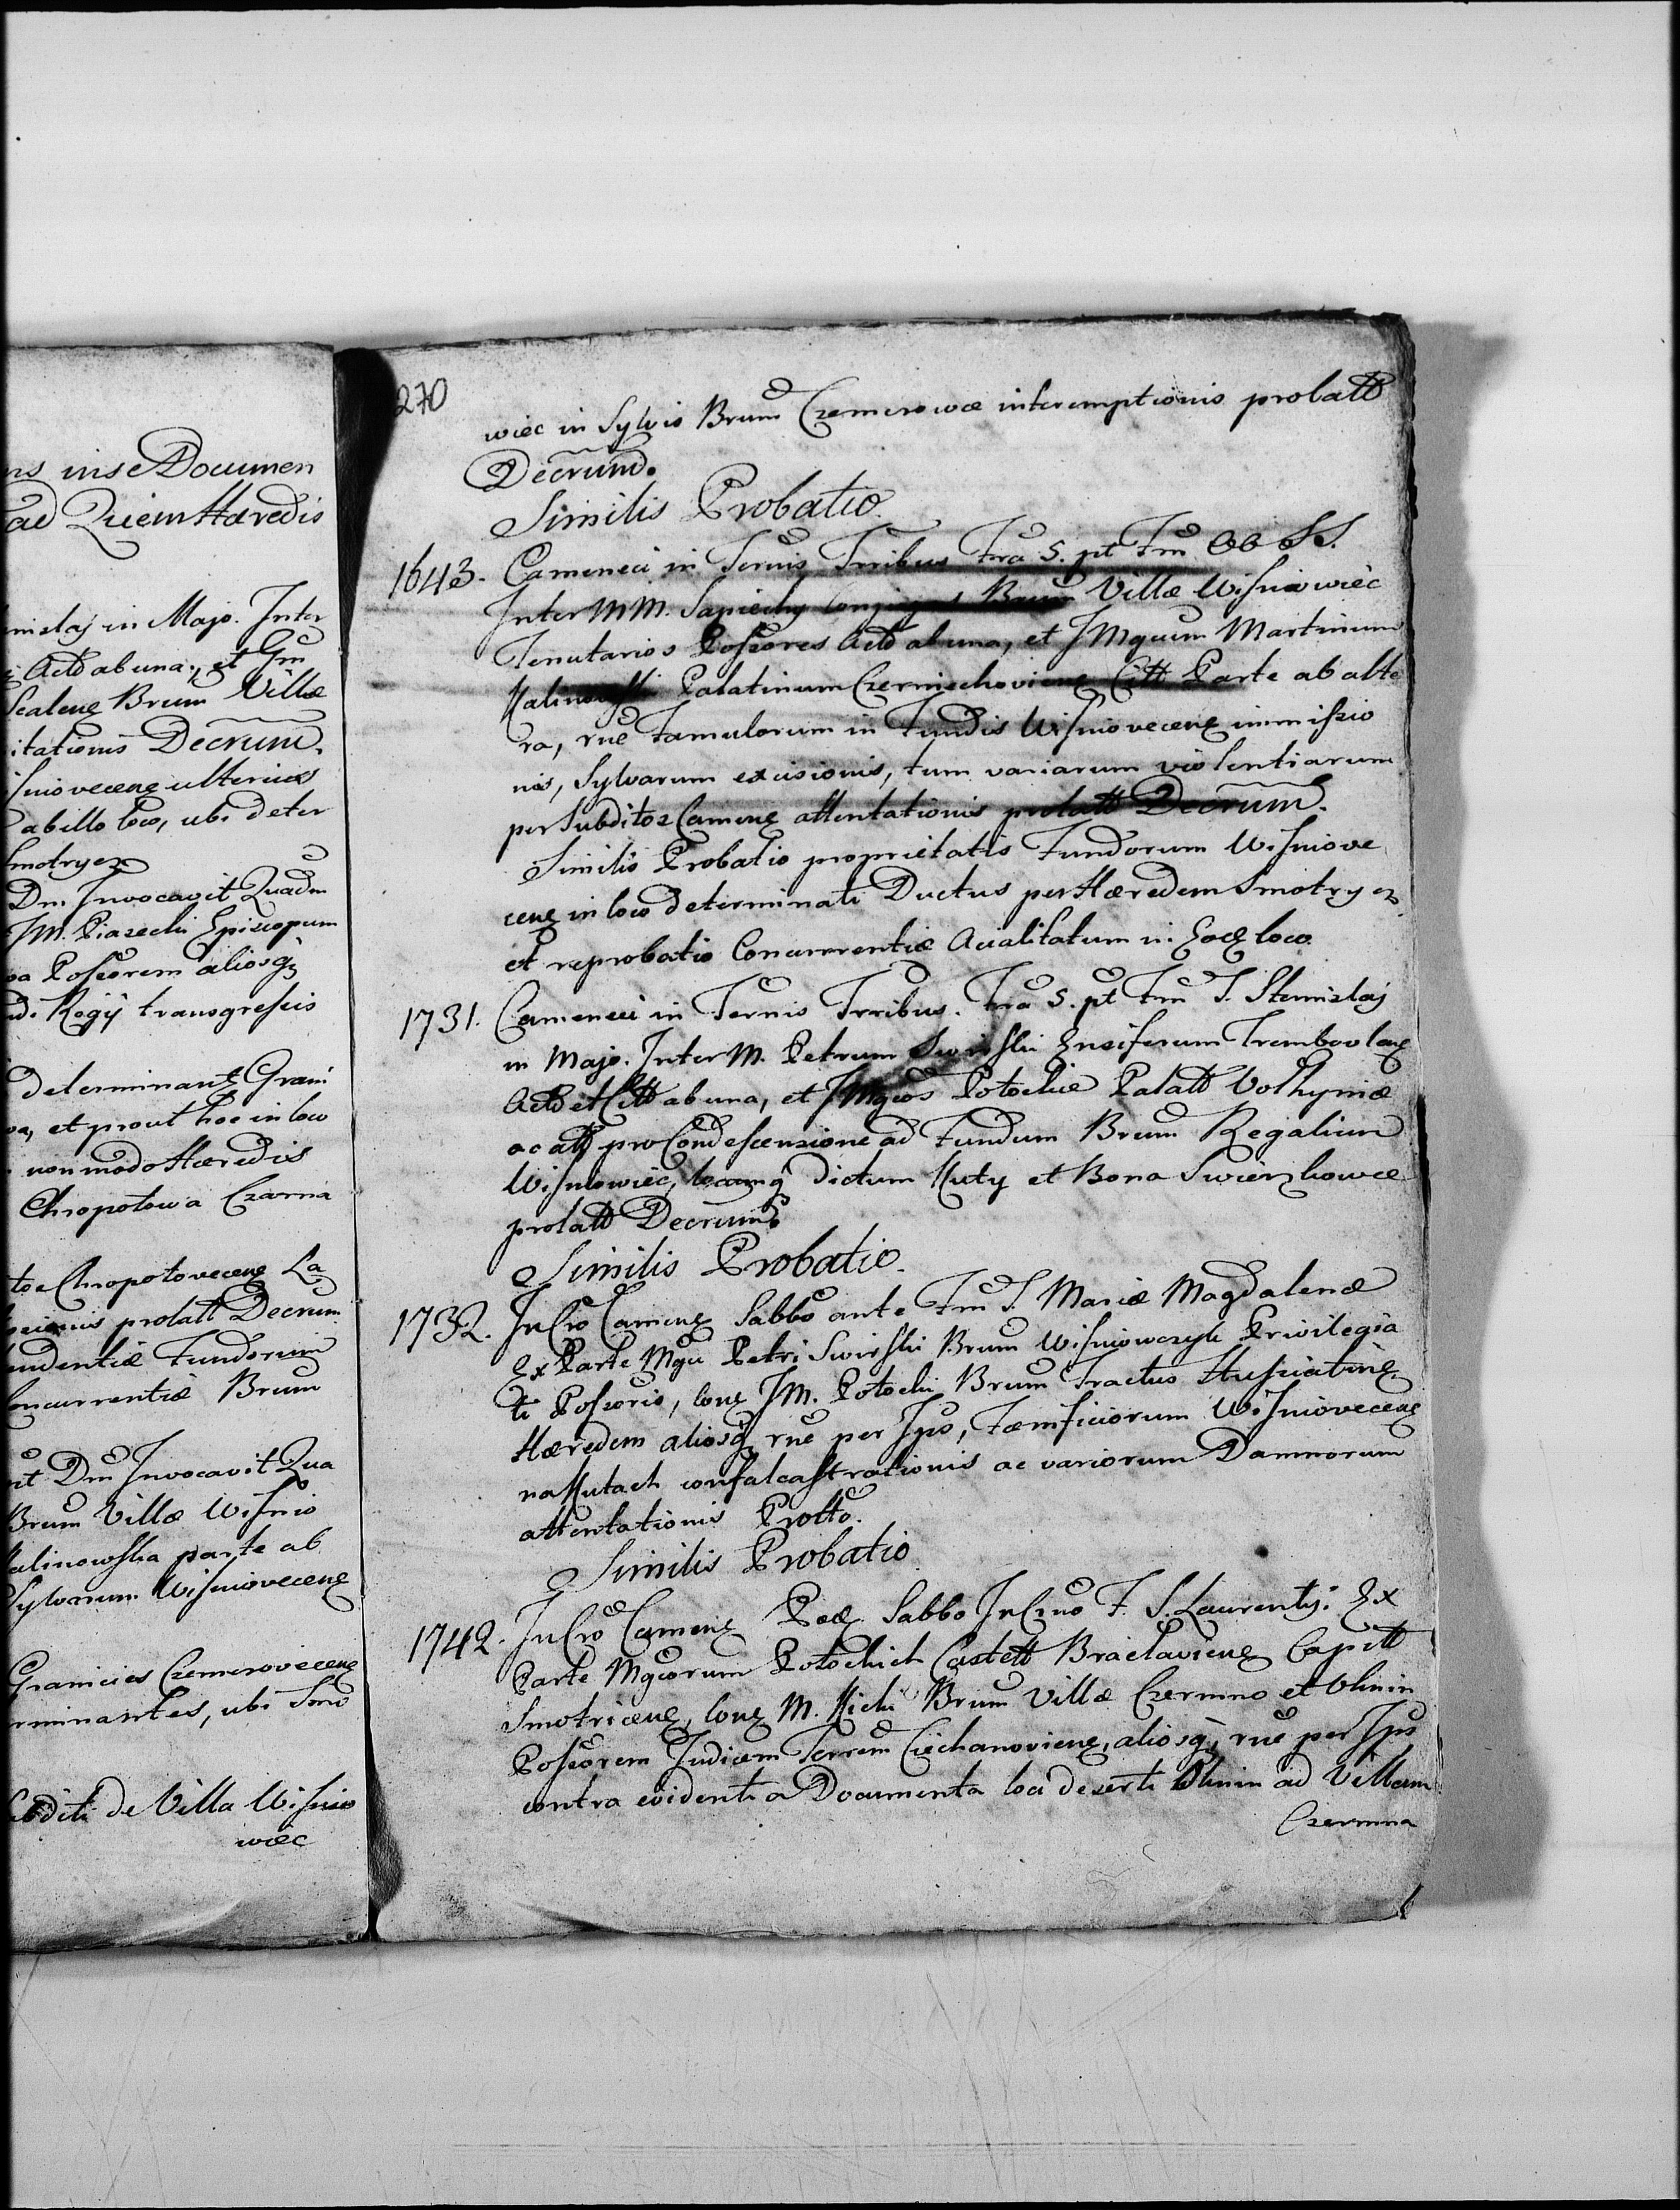 ns inse Documen
ad Quem Hæredis
nislaj in Majo. Inter
Actō ab una, et Gm
Scalenę Brum Villæ
itationis Decrum.
snioveceñ ulterius
ab illo loco, ubi deter
Smotrycz
Dm. Invocavit Quadm
IM. Piasecki Episcopum
Possorem aliosq
Regij transgressis
determinant Grani
et prout hoc in loco
non modo Hæredis
Chropotowa Czarna
Chropotovecenę La
prolatt Decrum
Fundorum
Concurrentiæ Brum
Dm Invocavit Qua
Brum Villæ Wisnio
Kalinowska parte ab
Sylvarum Wisniovecenę
Granicies Czemerovecenę
rminantes, ubi Smo
bditi de Villa Wisnio
wiec
270
wiec in Sylvis Brum Czemerowcæ interemptionis prolatt
Decrum.
Similis Probatio.
1643. Cameneci in Ternis Trribus Fra 5. pt Fm OO SS.
Inter MM. Sapiechy Brum Villæ Wisniowiec
Tenutarios Possores Actō ab una, et IMgcum Martinum
Kalinowski Palatinum Czerniechovienę Citt Parte ab alte
ra, rnē Famulorum in Fundis Wisniovecenę immissio
nis, Sylvarum excisionis, tum variarum violentiarum
per Subditos Camenę attentationis prolatt Decrum.
Similis Probatio proprietatis Fundorum Wisniove
cenę in loco determinati Ductus per Hæredem Smotrycz
et reprobatio Concurrentiæ Acialitatum in Eođ loco.
1731. Cameneci in Ternis Trribus. Fra 5. pt Fm S. Stanislaj
in Majo. Inter M. Petrum Swirski Ensiferum Trembovlenę
Actō et Citt ab una, et IMgcos Potockie Palatt Volhyniæ
ac att pro Condescensione ad Fundum Brum Regalium
Wisniowiec, locumq dictum Kuty et Bona Swierzkowce
prolatt Decrum.
Similis Probatio.
1732. In Cro Camenę Sabbo ante Fm S. Mariæ Magdalenæ
Ex Parte Mgci Petri Swirski Brum Wisniowczyk Privilegia
ti Possoris, conę IM. Potocki Brum Tractus Husiatinę
Hæredem aliosq rnē per Ipos, Fœnificiorum Wisniovecenę
na Kutach confalcastrationis ac variorum Damnorum
attentationis Protto.
Similis Probatio
1742. In Cro Camenę Sabbo In Czno F. S. Laurentij. Ex
Parte Mgcorum Potockich Castett Braclavienę Capitt
Smotricenę, conę M. Kicki Brum Villæ Czermno et Olinin
Possorem Judicem Terrem Ciechanovienę, aliosq, rnē per Ipos
contra evidentia Documenta loci deserti Olinin ad Villam
Czermna